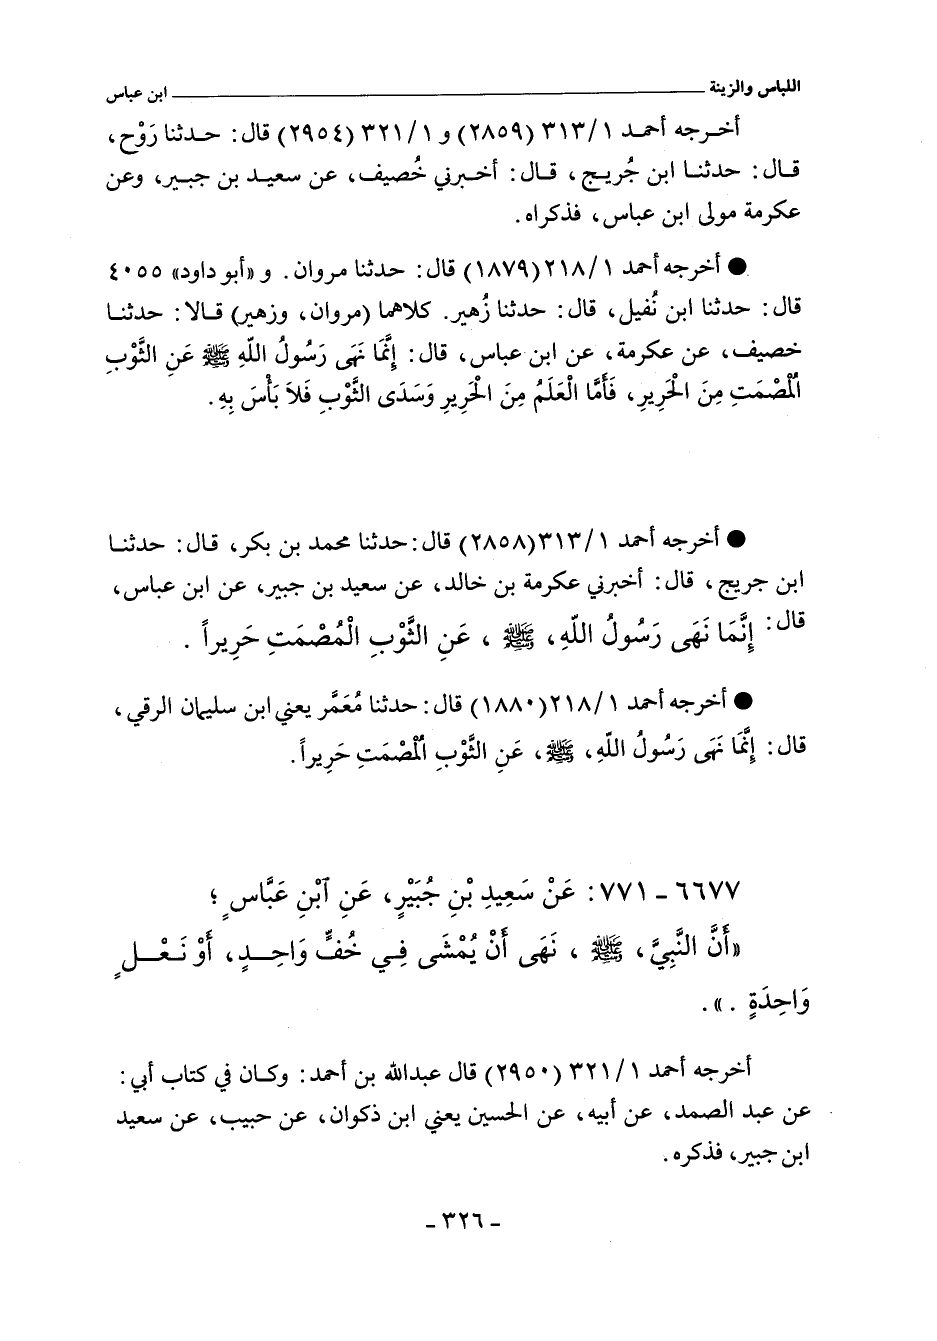 اللباس والزينة ــــــــ ابن عباس
أخرجه أحمد ١/٣١٣ (٢٨٥٩) و ١/٣٢١ (٢٩٥٤) قال: حدثنا رَوْح،
قال: حدثنا ابن جُريج، قال: أخبرني خُصيف، عن سعيد بن جبير، وعن
عكرمة مولى ابن عباس، فذكراه.
● أخرجه أحمد ١/٢١٨(١٨٧٩) قال: حدثنا مروان. و «أبو داود» ٤٠٥٥
قال: حدثنا ابن نُفيل، قال: حدثنا زُهير. كلاهما (مروان، وزهير) قالا: حدثنا
خصيف، عن عكرمة، عن ابن عباس، قال: إِنَّمَا نَهَى رَسُولُ اللّهِ ﷺ عَنِ الثَّوْبِ
الْمُصْمَتِ مِنَ الْحَرِيرِ، فَأَمَّا الْعَلَمُ مِنَ الْحَرِيرِ وَسَدَى الثَّوْبِ فَلاَ بَأْسَ بِهِ.
● أخرجه أحمد ١/٣١٣(٢٨٥٨) قال: حدثنا محمد بن بكر، قال: حدثنا
ابن جريج، قال: أخبرني عكرمة بن خالد، عن سعيد بن جبير، عن ابن عباس،
قال: إِنَّمَا نَهَى رَسُولُ اللّهِ، ﷺ، عَنِ الثَّوْبِ الْمُصْمَتِ حَرِيراً.
● أخرجه أحمد ١/٢١٨(١٨٨٠) قال: حدثنا مُعَمَّر يعني ابن سليمان الرقي،
قال: إِنَّمَا نَهَى رَسُولُ اللّهِ، ﷺ، عَنِ الثَّوْبِ الْمُصْمَتِ حَرِيراً.
٦٦٧٧ - ٧٧١: عَنْ سَعِيدِ بْنِ جُبَيْرٍ، عَنِ ابْنِ عَبَّاسٍ؛
«أَنَّ النَّبِيَّ، ﷺ، نَهَى أَنْ يُمْشَى فِي خُفٍّ وَاحِدٍ، أَوْ نَعْلٍ
وَاحِدَةٍ.».
أخرجه أحمد ١/٣٢١ (٢٩٥٠) قال عبدالله بن أحمد: وكان في كتاب أبي:
عن عبد الصمد، عن أبيه، عن الحسين يعني ابن ذكوان، عن حبيب، عن سعيد
ابن جبير، فذكره.
- ٣٢٦ -